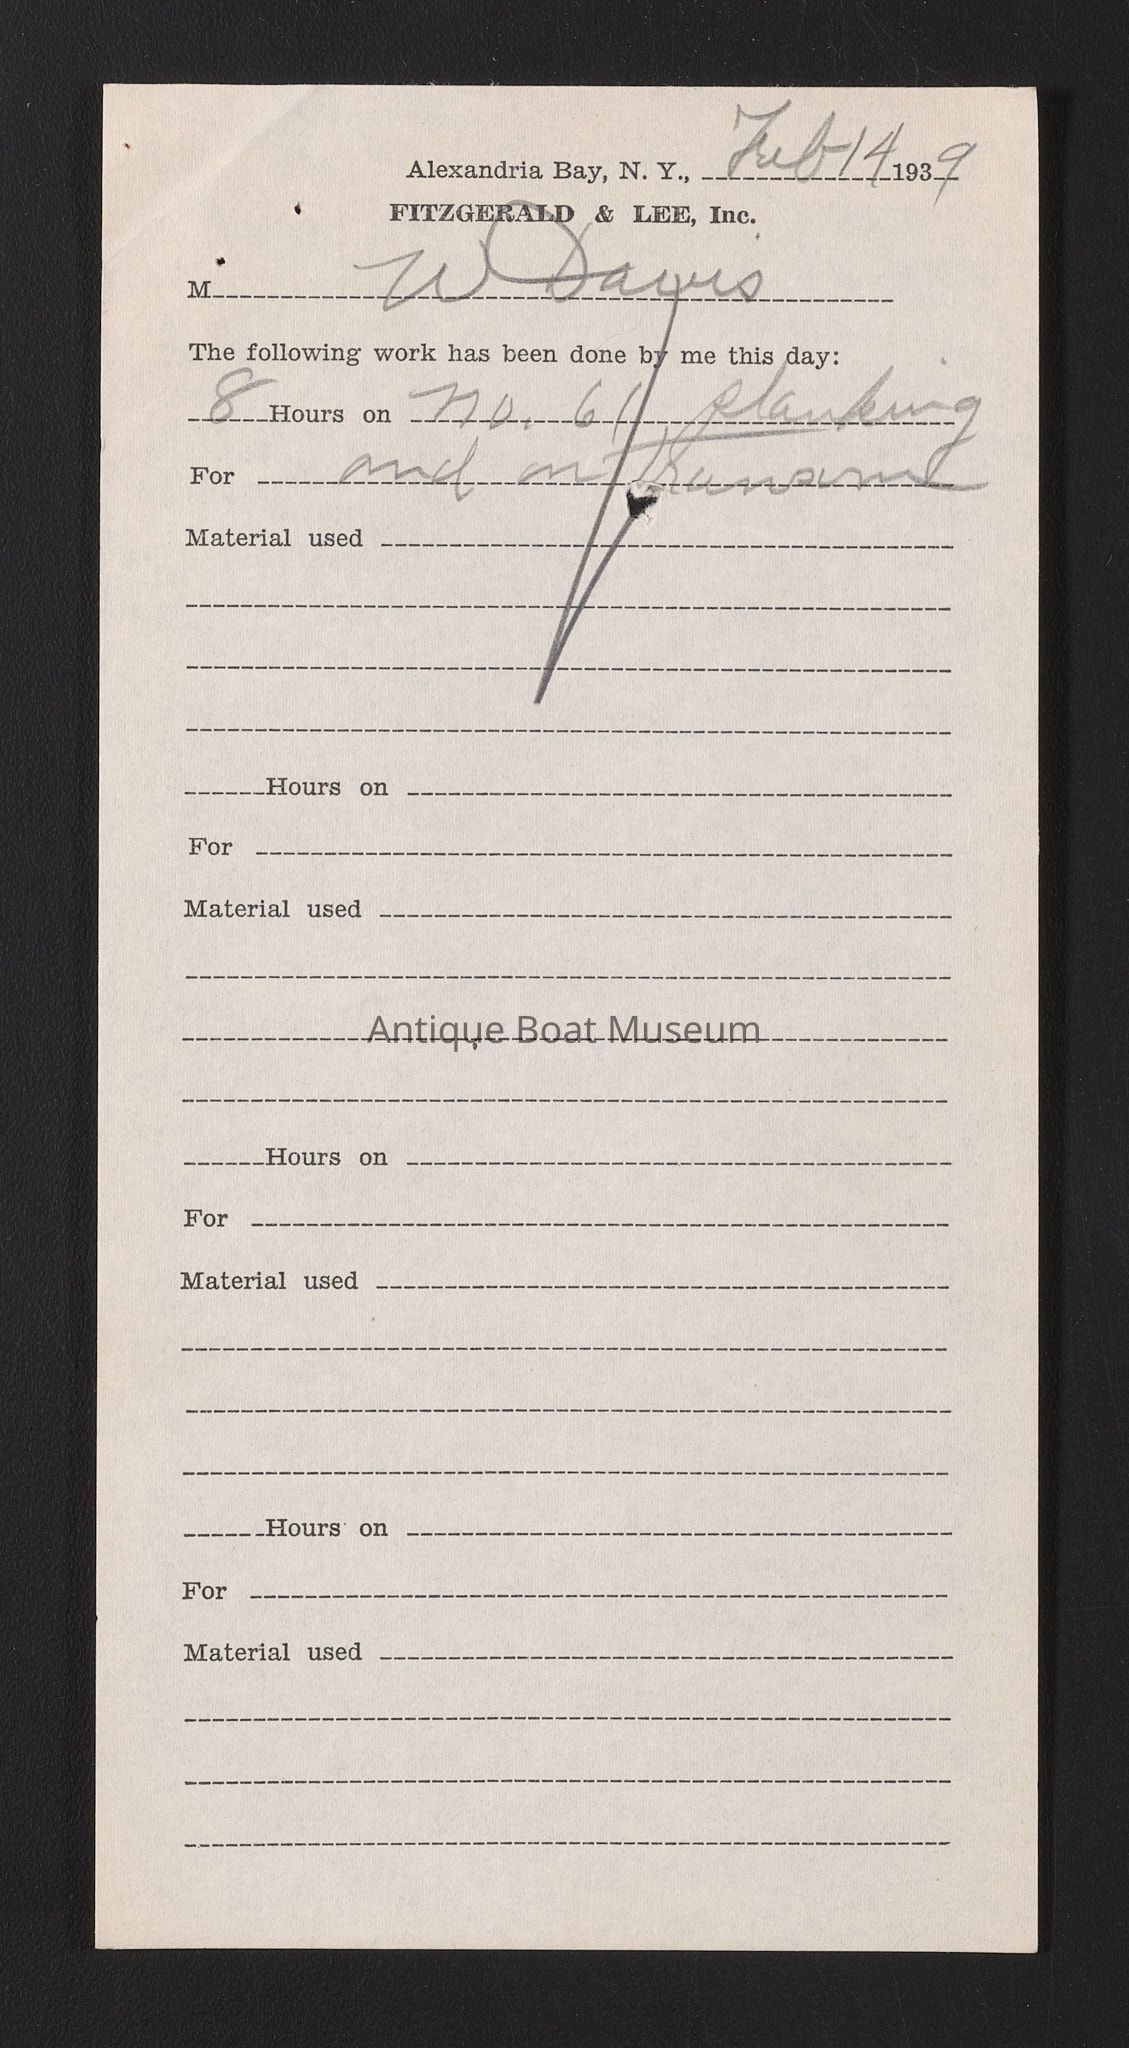 Alexandria Bay, N. Y., Feb 14 1939
FITZGERALD & LEE, Inc.
M W Davis
The following work has been done by me this day:
8 Hours on No. 61 planking
For and on transome
Material used
Hours on
For
Material used
Antique Boat Museum
Hours on
For
Material used
Hours on
For
Material used